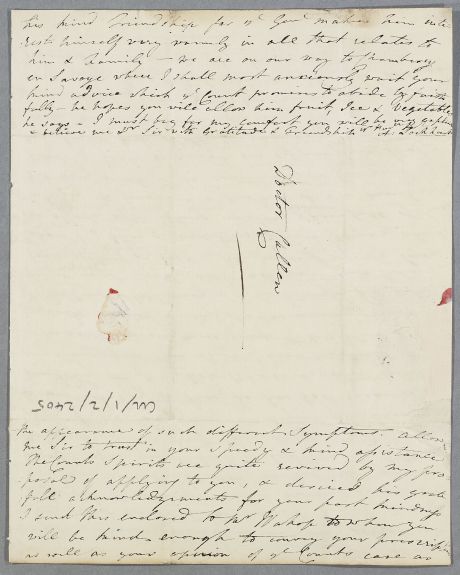 his kind Friendship for ye Genl makes him inte
rest himself very warmly in all that relates to
him & Family – we are on our way to Chambery
en Savoye where I shall most anxiously wait your
kind advice which ye Court promises to abide by faith
fully – he hopes you will allow him fruit, Ice & Vegetables
he says – I must beg for my comfort you will be very explicit
& believe me Dr Sir with Gratitude & Friendship A: Lockhart
Doctor Cullen
CUL/1/2/2405
the appearance of such different Symptoms. allow
me Sir to trust in your Speedy & kind assistance
The Counts Spirits are quite revived by my pro
posal of applying to you, & desires his grate
full acknowledgements for your past kindness
I send this enclosed to Mr Wahop to whom you
will be kind enough to convey your prescription
as well as your opinion of ye Counts case as